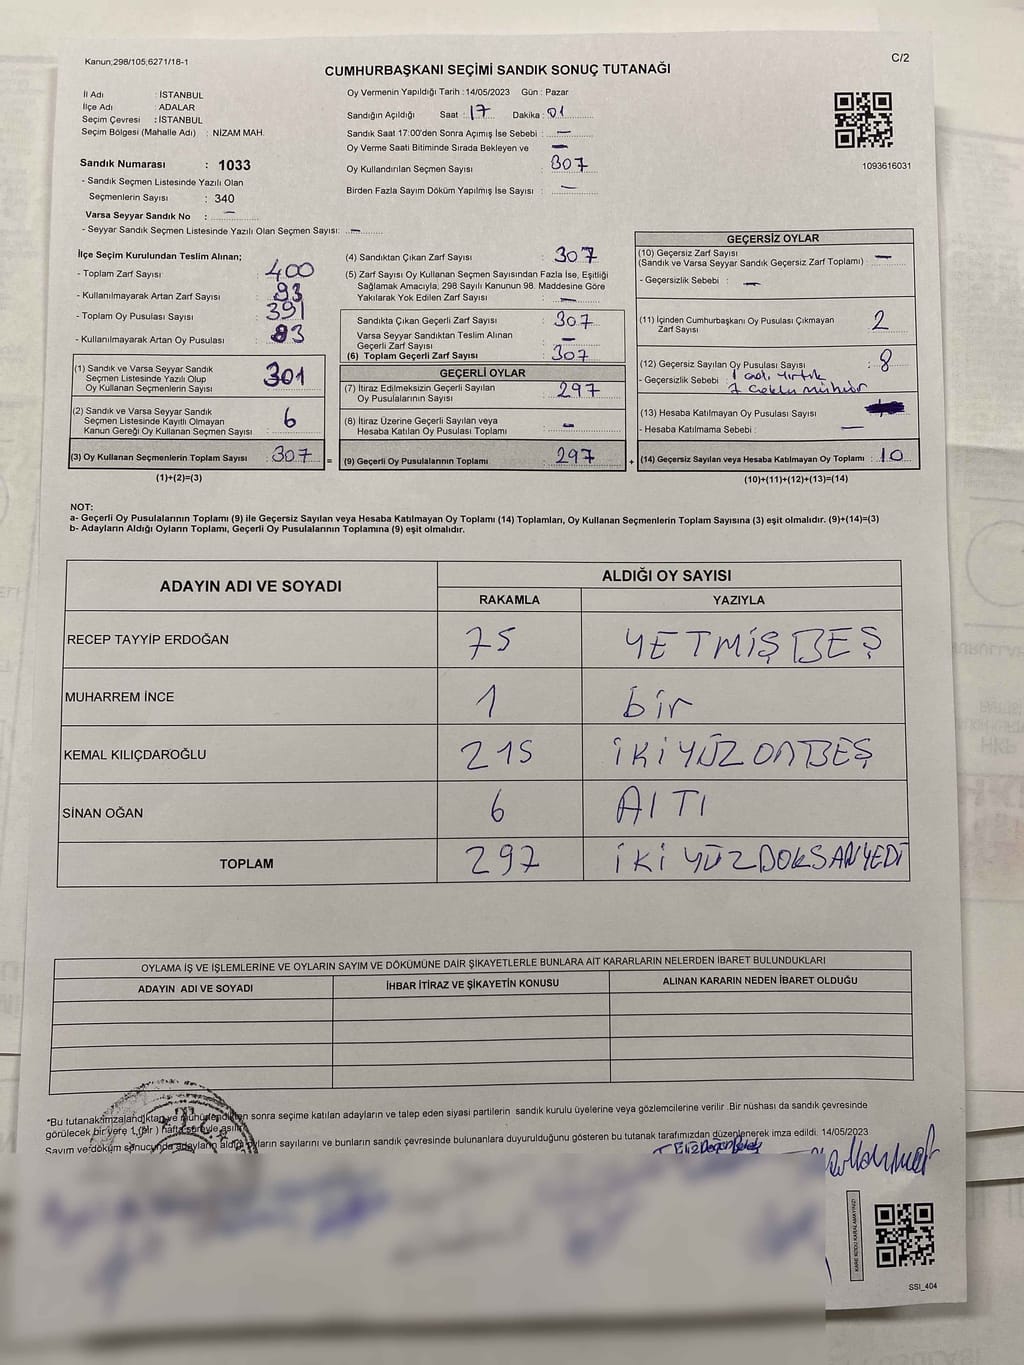 Kanun;298/105;6271/18-1
C/2
CUMHURBAŞKANI SEÇİMİ SANDIK SONUÇ TUTANAĞI
İl Adı : İSTANBUL
İlçe Adı : ADALAR
Seçim Çevresi : İSTANBUL
Seçim Bölgesi (Mahalle Adı) : NİZAM MAH.
Sandık Numarası : 1033
- Sandık Seçmen Listesinde Yazılı Olan
Seçmenlerin Sayısı : 340
Varsa Seyyar Sandık No : —
- Seyyar Sandık Seçmen Listesinde Yazılı Olan Seçmen Sayısı: —
Oy Vermenin Yapıldığı Tarih : 14/05/2023 Gün : Pazar
Sandığın Açıldığı Saat : 17 Dakika : 01
Sandık Saat 17:00'den Sonra Açımış İse Sebebi : —
Oy Verme Saati Bitiminde Sırada Bekleyen ve —
Oy Kullandırılan Seçmen Sayısı : 307
Birden Fazla Sayım Döküm Yapılmış İse Sayısı : —
1093616031
İlçe Seçim Kurulundan Teslim Alınan;
- Toplam Zarf Sayısı : 400
- Kullanılmayarak Artan Zarf Sayısı : 93
- Toplam Oy Pusulası Sayısı : 391
- Kullanılmayarak Artan Oy Pusulası : 83
(1) Sandık ve Varsa Seyyar Sandık
Seçmen Listesinde Yazılı Olup
Oy Kullanan Seçmenlerin Sayısı : 301
(2) Sandık ve Varsa Seyyar Sandık
Seçmen Listesinde Kayıtlı Olmayan
Kanun Gereği Oy Kullanan Seçmen Sayısı : 6
(3) Oy Kullanan Seçmenlerin Toplam Sayısı : 307 =
(1)+(2)=(3)
(4) Sandıktan Çıkan Zarf Sayısı : 307
(5) Zarf Sayısı Oy Kullanan Seçmen Sayısından Fazla İse, Eşitliği
Sağlamak Amacıyla, 298 Sayılı Kanunun 98. Maddesine Göre
Yakılarak Yok Edilen Zarf Sayısı : —
Sandıkta Çıkan Geçerli Zarf Sayısı : 307
Varsa Seyyar Sandıktan Teslim Alınan
Geçerli Zarf Sayısı : —
(6) Toplam Geçerli Zarf Sayısı : 307
GEÇERLİ OYLAR
(7) İtiraz Edilmeksizin Geçerli Sayılan
Oy Pusulalarının Sayısı : 297
(8) İtiraz Üzerine Geçerli Sayılan veya
Hesaba Katılan Oy Pusulası Toplamı : —
(9) Geçerli Oy Pusulalarının Toplamı : 297 +
GEÇERSİZ OYLAR
(10) Geçersiz Zarf Sayısı
(Sandık ve Varsa Seyyar Sandık Geçersiz Zarf Toplamı) : —
- Geçersizlik Sebebi : —
(11) İçinden Cumhurbaşkanı Oy Pusulası Çıkmayan
Zarf Sayısı : 2
(12) Geçersiz Sayılan Oy Pusulası Sayısı : 8
- Geçersizlik Sebebi : 1 yırtık
7 mühür
(13) Hesaba Katılmayan Oy Pusulası Sayısı
- Hesaba Katılmama Sebebi : —
(14) Geçersiz Sayılan veya Hesaba Katılmayan Oy Toplamı : 10
(10)+(11)+(12)+(13)=(14)
NOT:
a- Geçerli Oy Pusulalarının Toplamı (9) ile Geçersiz Sayılan veya Hesaba Katılmayan Oy Toplamı (14) Toplamları, Oy Kullanan Seçmenlerin Toplam Sayısına (3) eşit olmalıdır. (9)+(14)=(3)
b- Adayların Aldığı Oyların Toplamı, Geçerli Oy Pusulalarının Toplamına (9) eşit olmalıdır.
ADAYIN ADI VE SOYADI ALDIĞI OY SAYISI
RAKAMLA YAZIYLA
RECEP TAYYİP ERDOĞAN 75 YETMİŞBEŞ
MUHARREM İNCE 1 bir
KEMAL KILIÇDAROĞLU 215 İKİYÜZ ONBEŞ
SİNAN OĞAN 6 AlTI
TOPLAM 297 İKİ YÜZ DOKSANYEDİ
OYLAMA İŞ VE İŞLEMLERİNE VE OYLARIN SAYIM VE DÖKÜMÜNE DAİR ŞİKAYETLERLE BUNLARA AİT KARARLARIN NELERDEN İBARET BULUNDUKLARI
ADAYIN ADI VE SOYADI İHBAR İTİRAZ VE ŞİKAYETİN KONUSU ALINAN KARARIN NEDEN İBARET OLDUĞU
*Bu tutanak imzalandıktan ve mühürlendikten sonra seçime katılan adayların ve talep eden siyasi partilerin sandık kurulu üyelerine veya gözlemcilerine verilir .Bir nüshası da sandık çevresinde
görülecek bir yere 1 (bir ) hafta süreyle asılır.
Sayım ve döküm sonucunda adayların aldığı oyların sayılarını ve bunların sandık çevresinde bulunanlara duyurulduğunu gösteren bu tutanak tarafımızdan düzenlenerek imza edildi. 14/05/2023
T.C.
SSİ_404